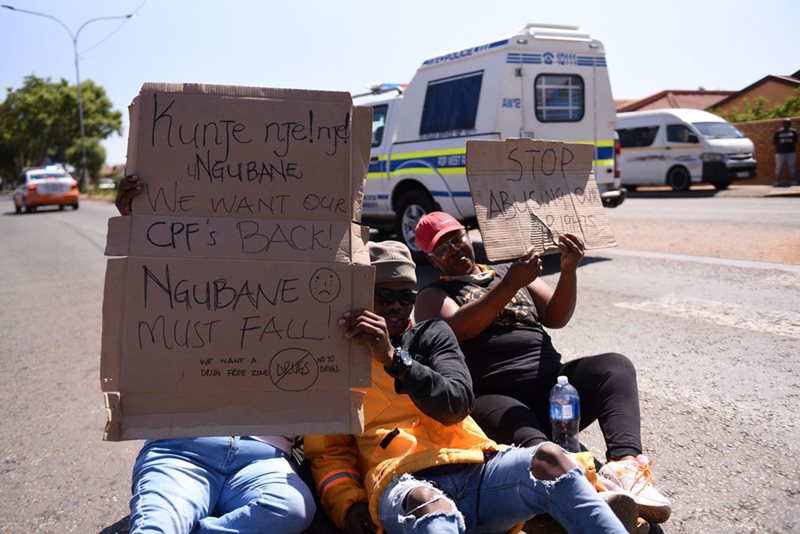 Kunje nje!nje!
uNGUBANE
WE WANT OUR
CPF's BACK!
NGUBANE
MUST FALL!
WE WANT A
DRUG FREE ZONE
DRUGS
NO TO
DRUGS.
STOP
ABUSING
POLICE
10111
AW12
POP WEST